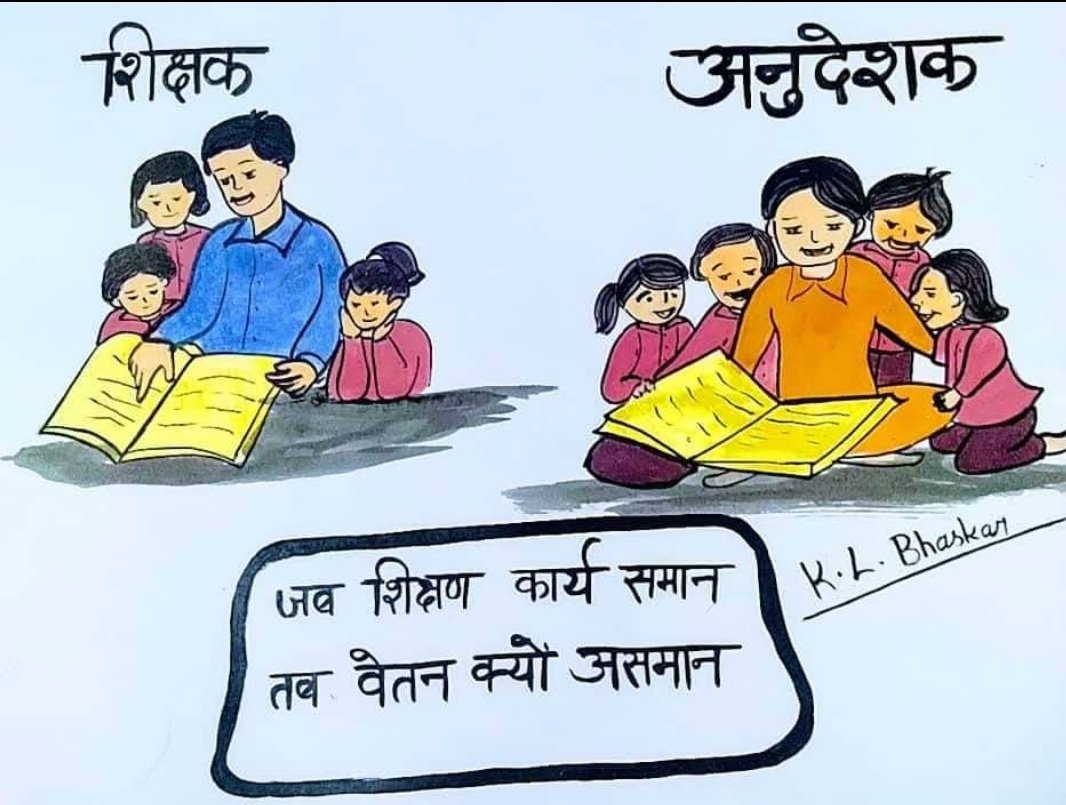 शिक्षक
अनुदेशक
जब शिक्षण कार्य समान
तब वेतन क्यों असमान
K. L. Bhaskar